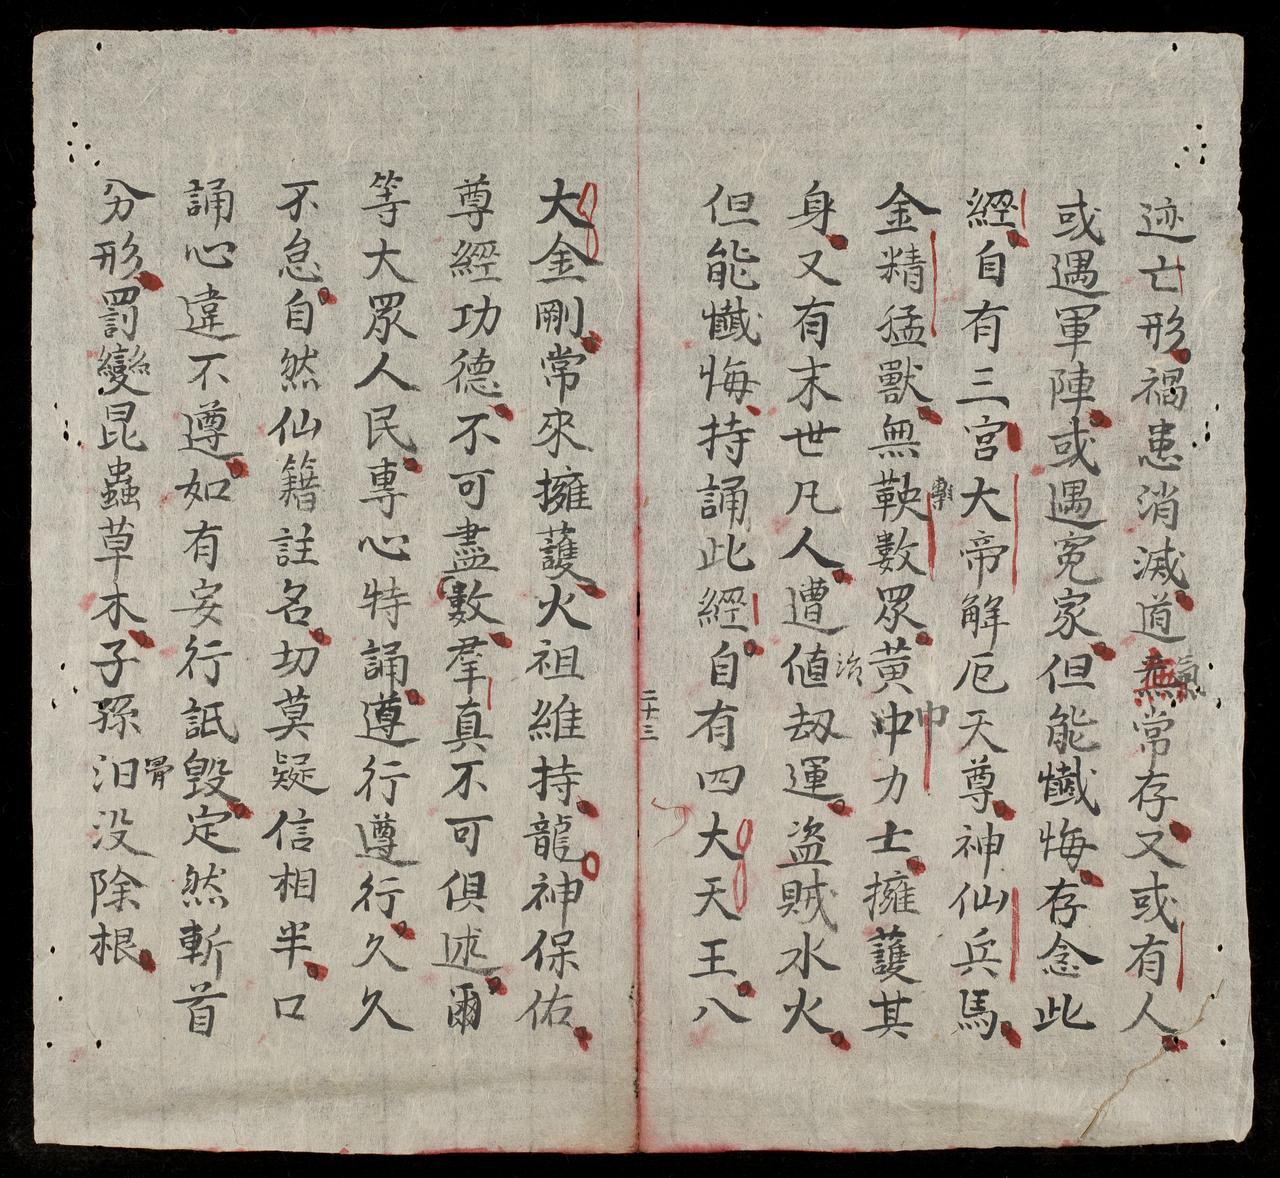 迹亡形禍患消滅道炁常存又或有人
或遇軍陣或遇冤家但能懺悔存念此
經自有三宫大帝解厄天尊神仙兵馬
金精猛獸無鞅數眾黃巾力士擁護其
身又有末世凡人遭值劫運盜賊水火
但能懺悔持誦此經自有四大天王八
二十三
大金剛常來擁護火祖維持龍神保佑
尊經功德不可盡數羣真不可俱述爾
等大眾人民專心特誦遵行遵行久久
不怠自然仙籍註名切莫疑信相半口
誦心違不遵如有妄行詆毀定然斬首
分形罰變昆蟲草木子孫汩没除根